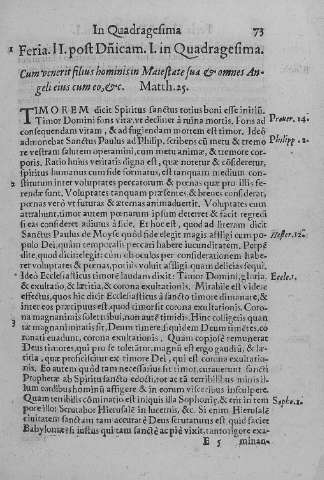 In Quadragesima 73
1 Feria. II. post Dñicam. I. in Quadragesima.
Cum venerit filius hominis in Maiestate sua & omnes An-
geli eius cum eo, &c. Matth. 25.
TIMOREM dicit Spiritus sanctus totius boni esse initiũ.
Timor Domini fons vitæ, vt declinet à ruina mortis. Fons ad Prouer. 14.
consequendam vitam, & ad fugiendam mortem est timor. Ideò
admonebat Sanctus Paulus ad Philip. scribens eũ metu & tremo Philipp. 2.
re vestram salutem operamini, cum metu animæ, & tremore cor-
poris. Ratio huius veritatis digna est, quæ notetur & cõsideretur,
spiritus humanus cum sede formatus, est tanquam medium con-
2 stitutum inter voluptates peccatorum & pœnas quæ pro illis fe-
rendæ sunt. Voluptates tanquam præsentes, & breues considerat,
pœnas verò vt futuras & æternas animaduertit. Voluptates eum
attrahunt, timor autem pœnarum ipsum deteret & facit regredi
si eas consideret adiunus à fide. Et hoc est, quod ad literam dicit
Sanctus Paulus de Moyse quòd fide elegit magis affligi cum po- Hester. 12.
pulo Dei, quàm temporalis peccati habere iucunditatem. Perpẽ
dite, quòd dicit cum fide: cùm ob oculos per considerationem habe-
ret voluptates & pœnas, potiùs voluit affligi, quàm delicias sequi.
Ideò Ecclesiasticus timorẽ laudans dixit: Timor Domini, gloria, Eccle. 1.
& exultatio, & lætitia, & corona exultationis. Mirabile est videre
effectus, quos hic dicit Ecclesiasticus à sancto timore dimanare, &
inter eos præcipuus est quòd efficitur corona exultationis. Coro-
na magnanimis solet tribui, non autẽ timidis. Hinc colligitis quan
3 ta magnanimitas sit, Deum timere, siquidem Deum timẽtes, co
ronati euadunt, corona exultationis. Quam copiosè remunerat
Deus timores, qui pro se toleratur, magnũ est ergo gaudiũ, & læ-
titia, quæ proficiscitur ex timore Dei, qui est corona exultatio-
nis. Eo autem quòd tam necessarius sit timor, curauerunt sancti
Prophetæ ab Spiritu sancto edocti, ter at tã terribilibus minis il-
lum cordibus hominũ affigere & in eorum visceribus insculpere.
Quam terribilis cõminatio est iniquis illa Sophoniæ, & erit in tem Sopho. 1.
pore illo: Scrutabor Hierusalẽ in lucernis, &c. Si enim Hierusalẽ
ciuitatem sanctam tam accuratè Deus scrutaturus est, quid faciet
Babylonæ si iustus qui tam sanctè ac piè vixit, tantorigore exa-
E 5 minan-